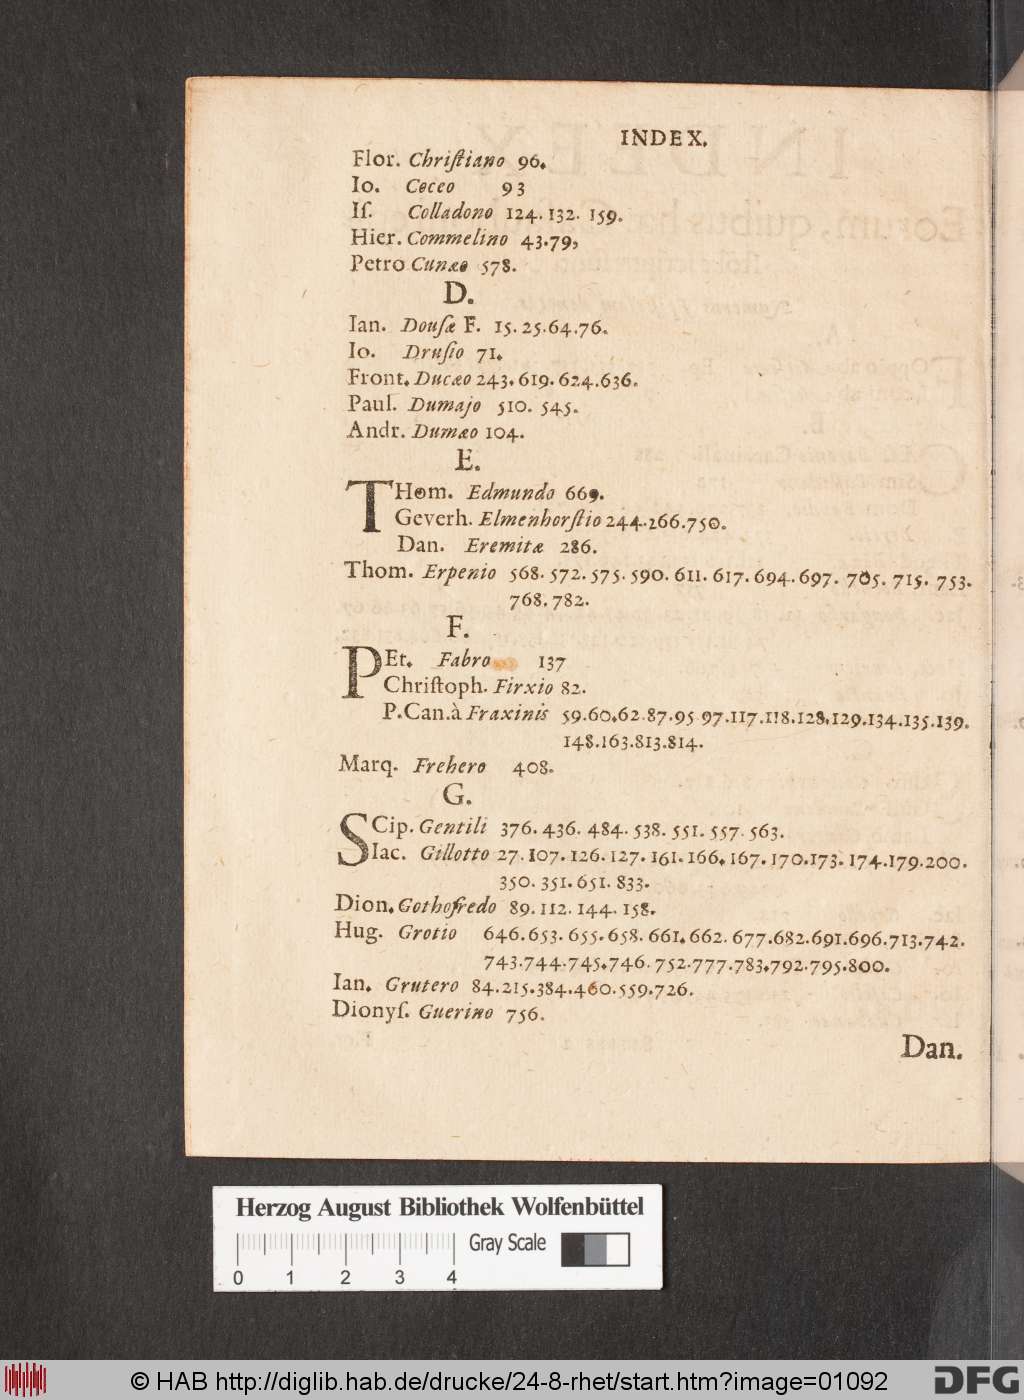 INDEX.
Flor. Chriſtiano 96.
Io. Ceceo 93
Iſ. Colladono 124. 132. 159.
Hier. Commelino 43.79,
Petro Cunæo 578.
D.
Ian. Douſæ F. 15. 25.64.76.
Io. Druſio 71.
Front. Ducæo 243. 619. 624.636.
Paul. Dumajo 510. 545.
Andr. Dumæo 104.
E.
THom. Edmundo 669.
Geverh. Elmenhorſtio 244.266.750.
Dan. Eremitæ 286.
Thom. Erpenio 568. 572. 575. 590. 611. 617. 694. 697. 705. 715. 753.
768. 782.
F.
PEt. Fabro 137
Chriſtoph. Firxio 82.
P.Can.à Fraxinis 59.60.62.87.95 97.117.118.128.129.134.135.139.
148.163.813.814.
Marq. Frehero 408.
G.
SCip. Gentili 376. 436. 484. 538. 551. 557. 563.
Iac. Gillotto 27. 107. 126. 127. 161. 166. 167. 170.173. 174.179.200.
350. 351. 651. 833.
Dion. Gothofredo 89. 112. 144. 158.
Hug. Grotio 646. 653. 655. 658. 661. 662. 677.682.691.696.713.742.
743.744.745.746. 752.777.783.792.795.800.
Ian. Grutero 84.215.384.460.559.726.
Dionyſ. Guerino 756.
Dan.
Herzog August Bibliothek Wolfenbüttel
Gray Scale
0 1 2 3 4
© HAB http://diglib.hab.de/drucke/24-8-rhet/start.htm?image=01092
DFG